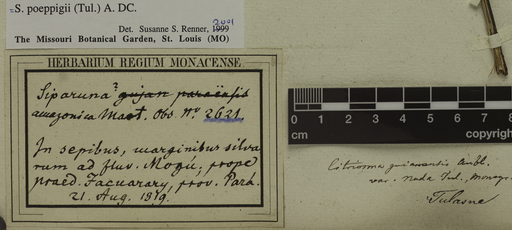 =S. poeppigii (Tul.) A. DC.
Det. Susanne S. Renner, 1999 2001
The Missouri Botanical Garden, St. Louis (MO)
HERBARIUM REGIUM MONACENSE
Siparuna? gujan paraënsis
amazonica Mart. Obs. No. 2621
In sepibus, marginibus silva
rum ad fluv. Mogú, prope
praed. Jacuarary, prov. Park.
21. Aug. 1819.
0 1 2 3 4 5 6 7 8
cm copyright
Citriosma guianensis Aubl.
var. nuda Tul., Monogr.
Tulasne